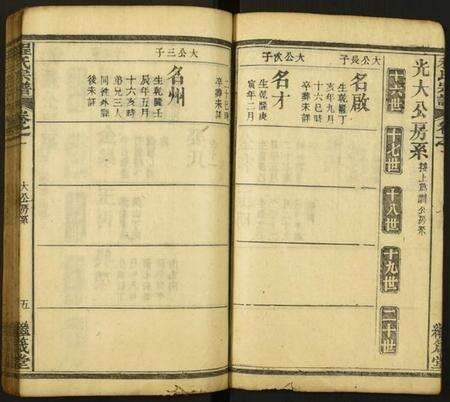 光大公房系
十六世
十七世
十八世
十九世
二十世
大公長子
名啟
生乾隆丁
亥年九月
十六巳時
卒葬未詳
大公次子
名才
生乾隆庚
寅年二月
卒葬未詳
大公三子
名州
生乾隆壬
辰年五月
十六亥時
弟兄三人
同徙外縣
後未詳
氏宗譜
卷之
大公房系
五
繼義堂